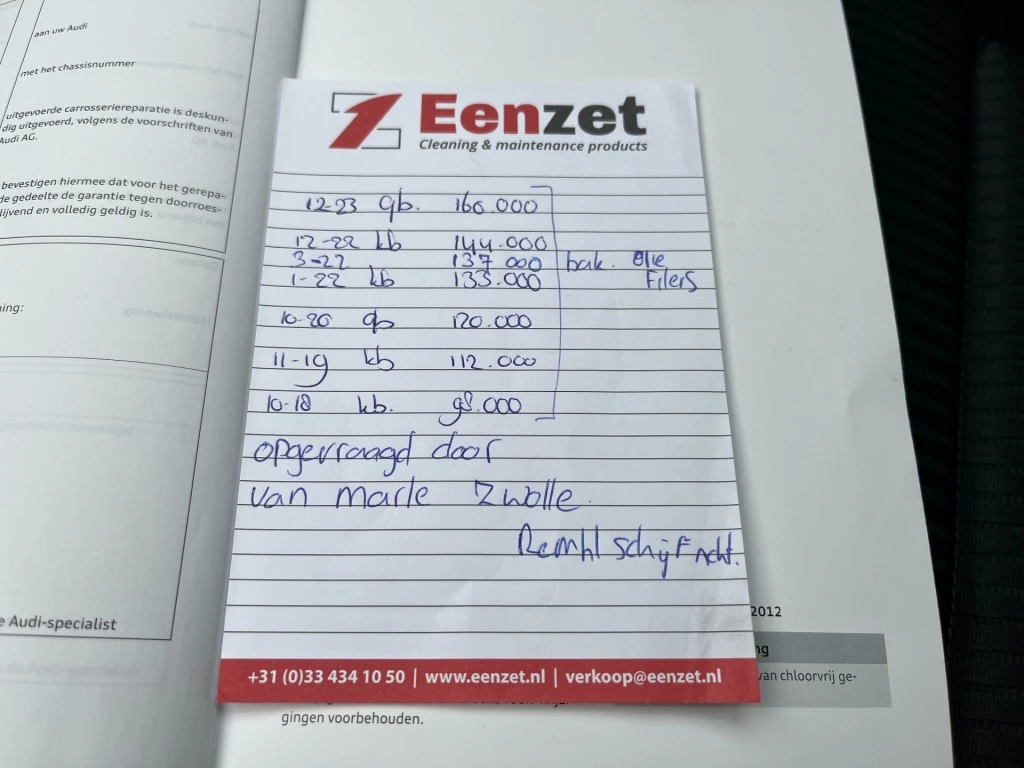 aan uw Audi
met het chassisnummer
uitgevoerde carrosseriereparatie is deskun-
dig uitgevoerd, volgens de voorschriften van
Audi AG.
bevestigen hiermee dat voor het gerepa-
de gedeelte de garantie tegen doorroes-
lijvend en volledig geldig is.
ning:
e Audi-specialist
Eenzet
Cleaning & maintenance products
12-23 gb. 160.000
12-22 kb 144.000
3-22 137 000 bak. Olie
1-22 kb 133.000 Filers
10-20 gb 120.000
11-19 kb 112.000
10-18 kb. 98.000
opgevraagd door
van marle Zwolle.
schijf
+31 (0)33 434 10 50 | www.eenzet.nl | verkoop@eenzet.nl
2012
ng
van chloorvrij ge-
gingen voorbehouden.